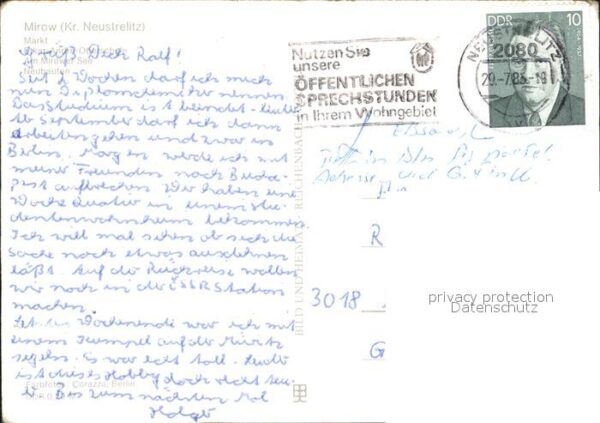 Mirow (Kr. Neustrelitz)
Markt
Am Mirower See
Neubauten
Grüß Dich Ralf!
Seit 2 Wochen darf ich mich
nun Diplomchemiker nennen.
Das Studium ist beendet - leider
Ab September darf ich dann
arbeiten gehen und zwar in
Berlin. Morgen werde ich mit
meiner Freundin nach Buda-
pest aufbrechen. Wir haben eine
Woche Quartier in einem Stu-
dentenwohnheim bekommen.
Ich will mal sehen ob sich die
Sache noch etwas ausdehnen
läßt. Auf der Rückreise wollen
wir noch in der ČSSR Station
machen.
Letztes Wochenende war ich mit
einem Kumpel auf der Müritz
segeln. Es war echt toll. Leider
ist dieses Hobby doch recht teu-
er. Bis zum nächsten Mal
Holger
Farbfotos: Corazza, Berlin
BILD UND HEIMAT REICHENBACH
Nutzen Sie
unsere
ÖFFENTLICHEN
SPRECHSTUNDEN
in Ihrem Wohngebiet
NEUSTRELITZ
2080
29.-7.85.-18
DDR
10
R
G
3018
privacy protection
Datenschutz